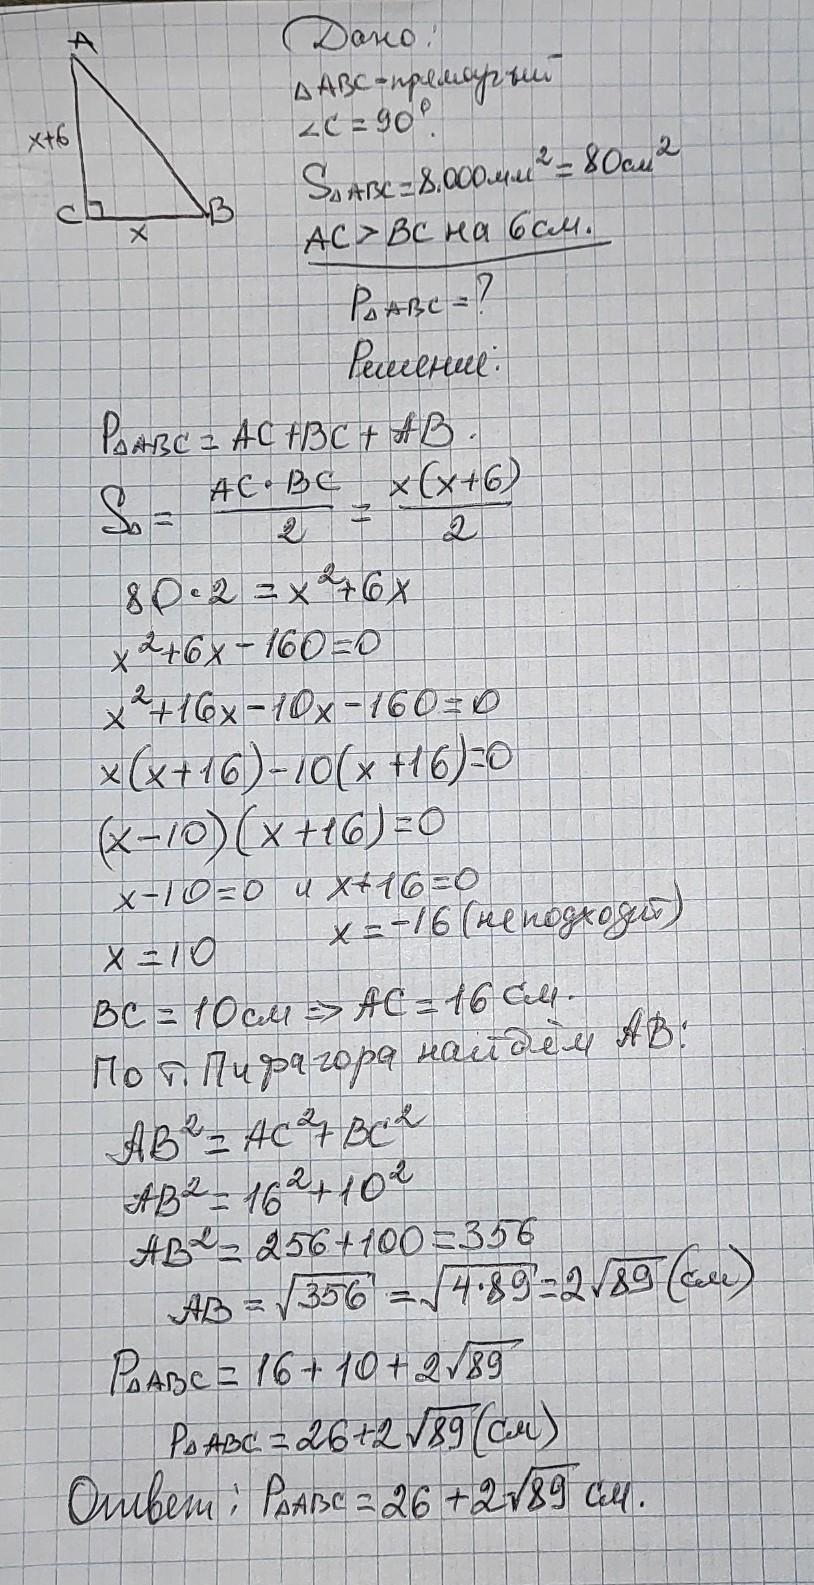 A
x+6
C
B
x
Дано:
△ABC - прямоуг-ый
∠C = 90°.
S△ABC = 8.000мм² = 80см²
AC > BC на 6см.
P△ABC = ?
Решение:
P△ABC = AC + BC + AB.
S△ = AC · BC / 2 = x(x+6) / 2
80 · 2 = x² + 6x
x² + 6x - 160 = 0
x² + 16x - 10x - 160 = 0
x(x+16) - 10(x+16) = 0
(x-10)(x+16) = 0
x-10=0 и x+16=0
x = 10 x = -16 (не подходит)
BC = 10см => AC = 16 см.
По т. Пифагора найдём AB:
AB² = AC² + BC²
AB² = 16² + 10²
AB² = 256 + 100 = 356
AB = √356 = √4·89 = 2√89 (см)
P△ABC = 16 + 10 + 2√89
P△ABC = 26 + 2√89 (см)
Ответ: P△ABC = 26 + 2√89 см.